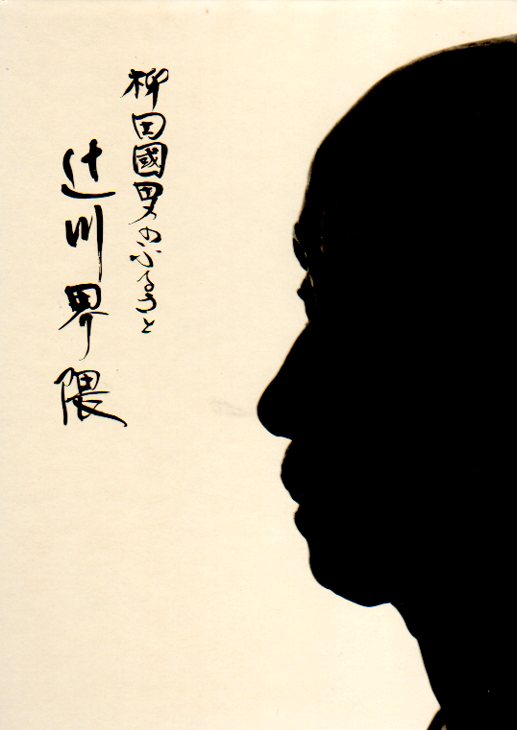 柳田國男のふるさと
辻川界隈